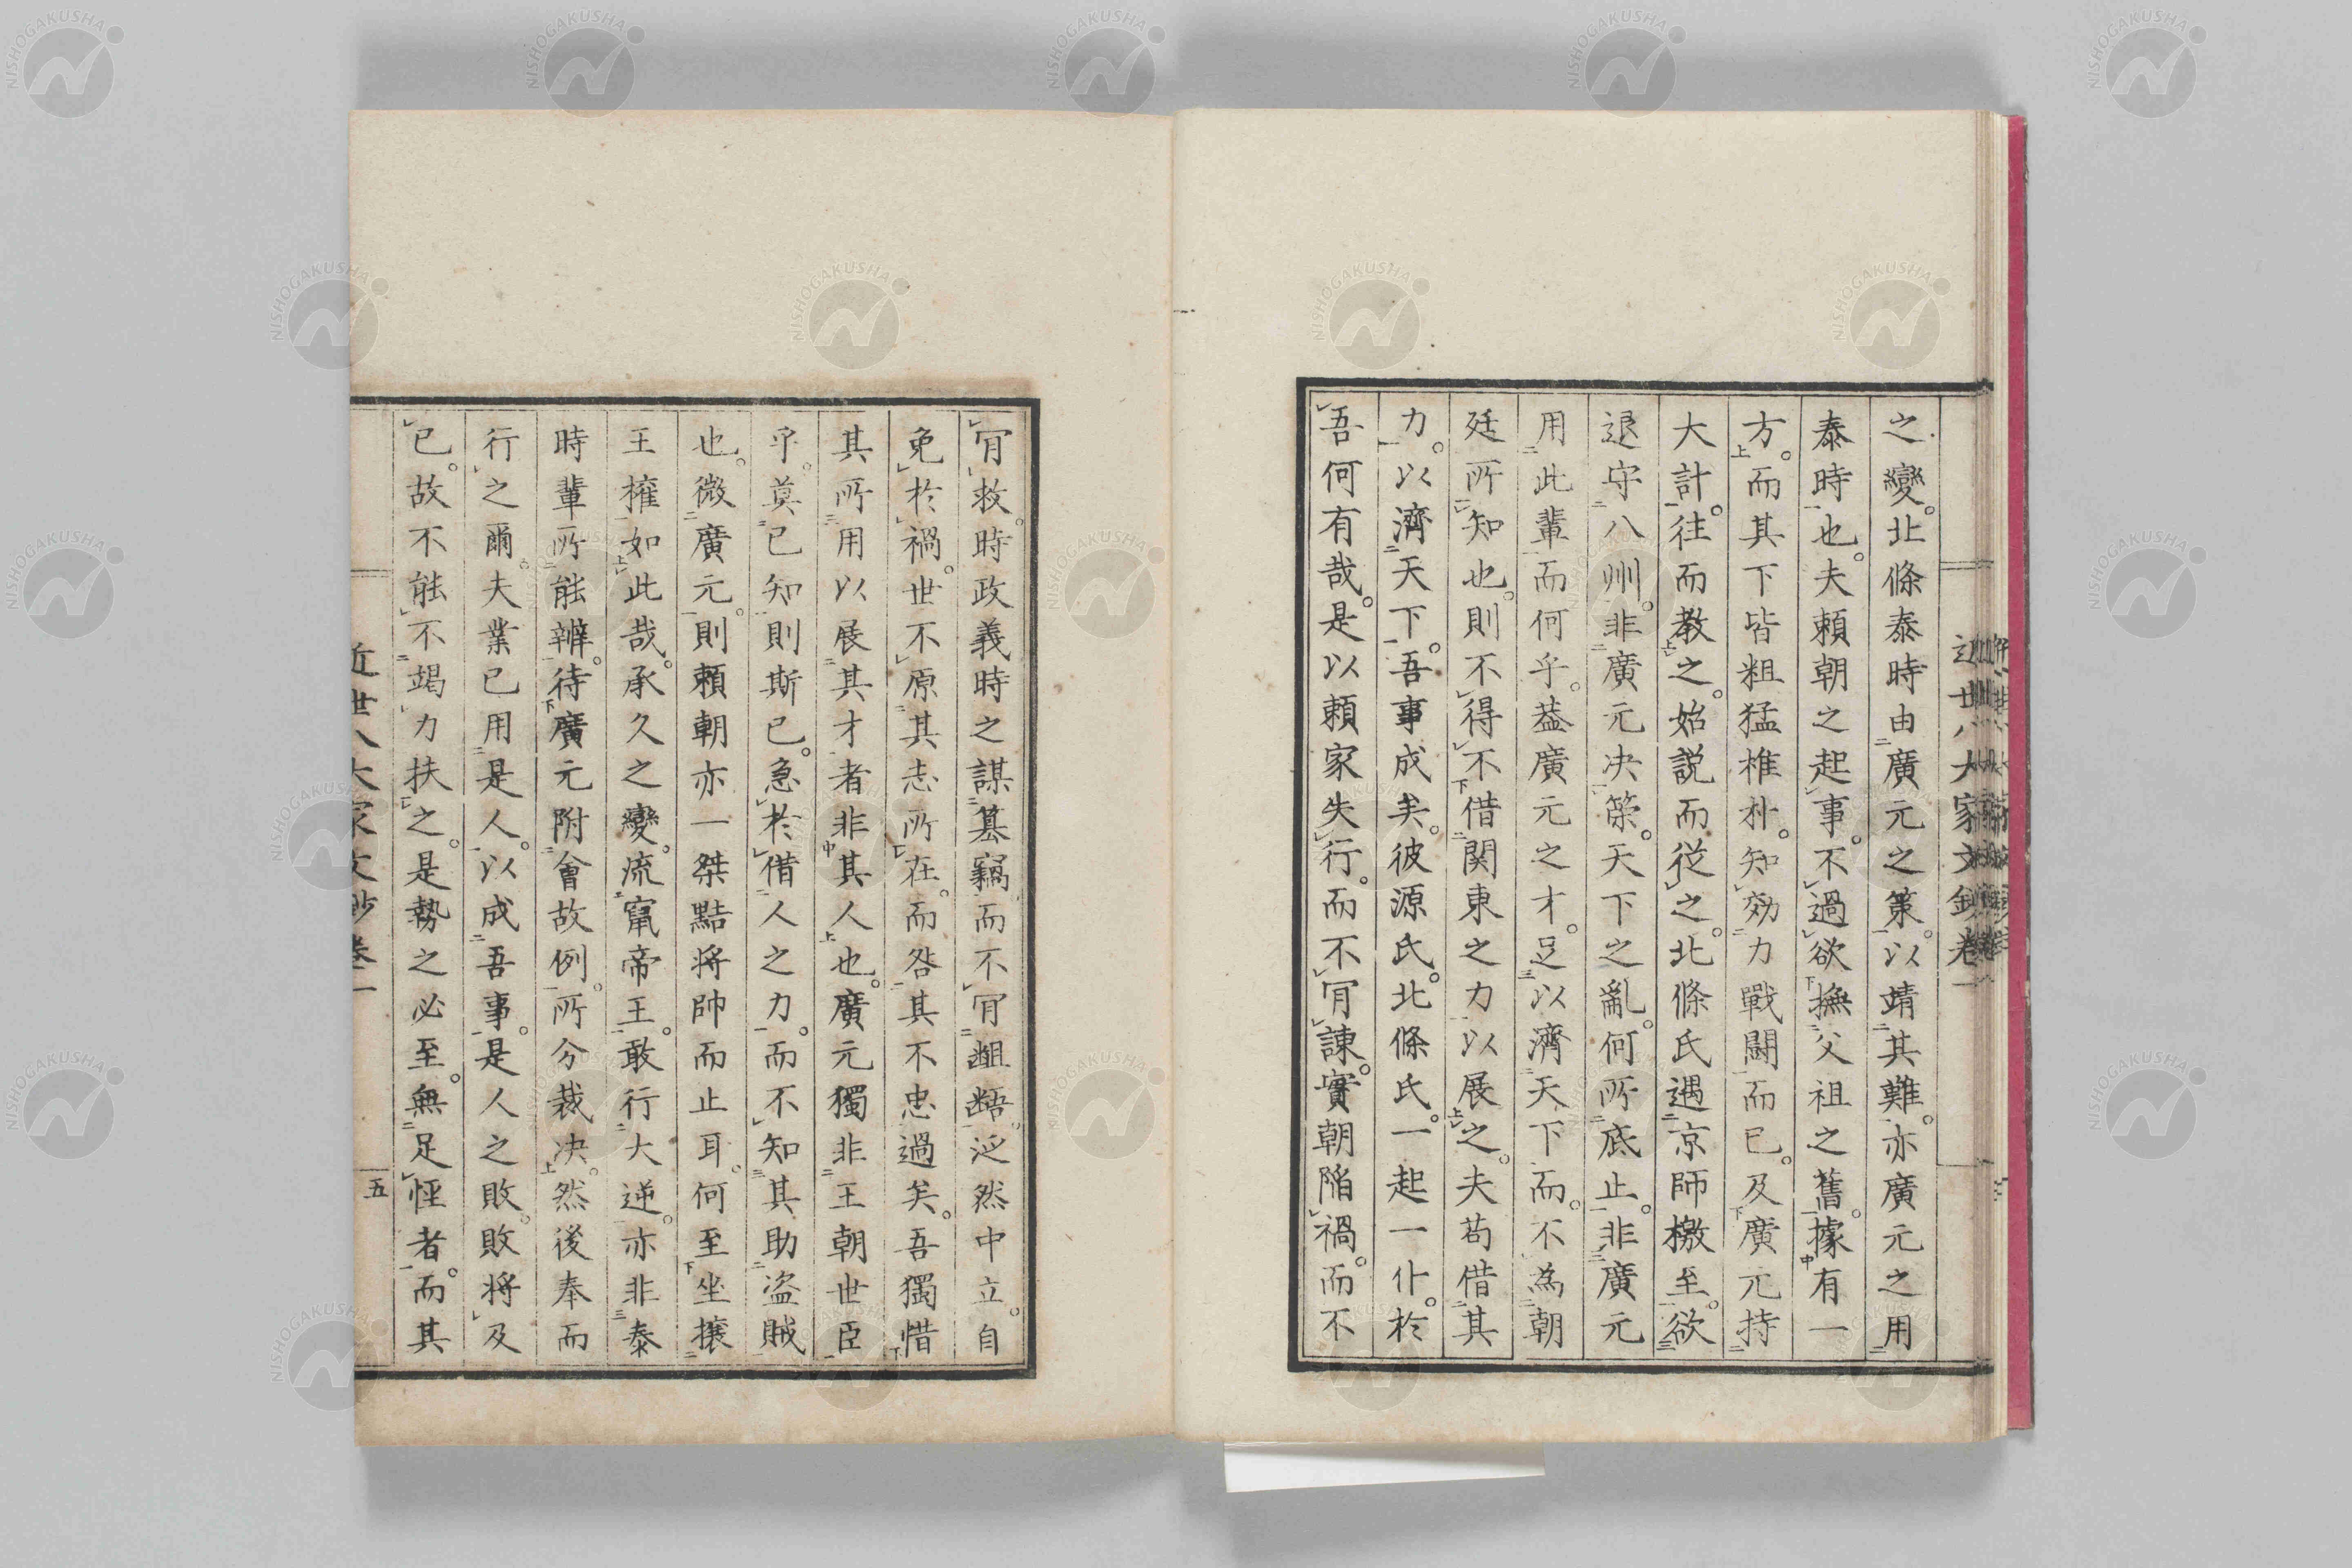 之變。北條泰時由廣元之策。以靖其難。亦廣元之用
泰時也。夫賴朝之起事。不過欲撫父祖之舊。據有一
方。而其下皆粗猛椎朴。知効力戰鬪而已。及廣元持
大計。往而教之。始説而從之。北條氏遇京師檄至。欲
退守八州。非廣元决策。天下之亂。何所底止。非廣元
用此輩而何乎。葢廣元之才。足以濟天下而。不為朝
廷所知也。則不得不借関東之力以展之。夫苟借其
力。以濟天下。吾事成矣。彼源氏。北條氏。一起一仆。於
吾何有哉。是以賴家失行。而不肎諫。實朝陥禍。而不
肎救。時政義時之謀簒竊而不肎齟齬。泛然中立。自
免於禍。世不原其志所在。而咎其不忠過矣。吾獨惜
其所用以展其才者非其人也。廣元獨非王朝世臣
乎。莫已知則斯已。急於借人之力。而不知其助盗賊
也。微廣元。則賴朝亦一桀黠將帥而止耳。何至坐攘
王權如此哉。承久之變。流竄帝王。敢行大逆。亦非泰
時輩所能辨。待廣元附會故例。所分裁决。然後奉而
行之爾。夫業已用是人。以成吾事。是人之敗。敗將及
已。故不能不竭力扶之。是勢之必至。無足恠者。而其
近世八大家文鈔卷一
五
NISHOGAKUSHA